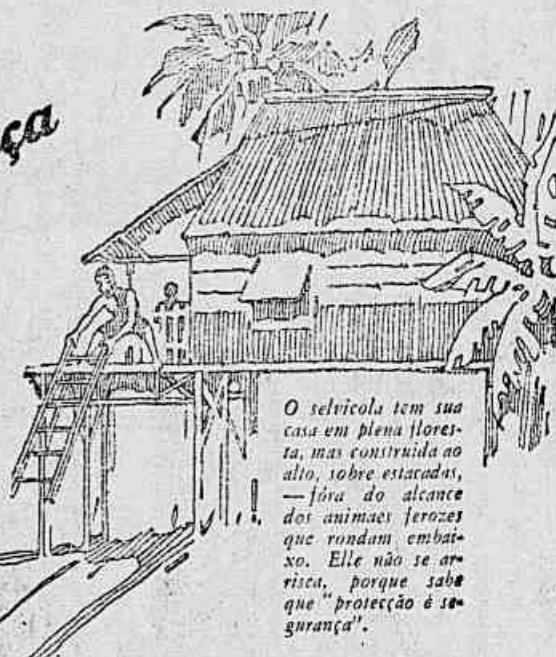 ça
O selvicola tem sua
casa em plena flores-
ta, mas construida ao
alto, sobre estacadas,
— fóra do alcance
dos animaes ferozes
que rondam embai-
xo. Elle não se ar-
risca, porque sabe
que "protecção é se-
gurança".